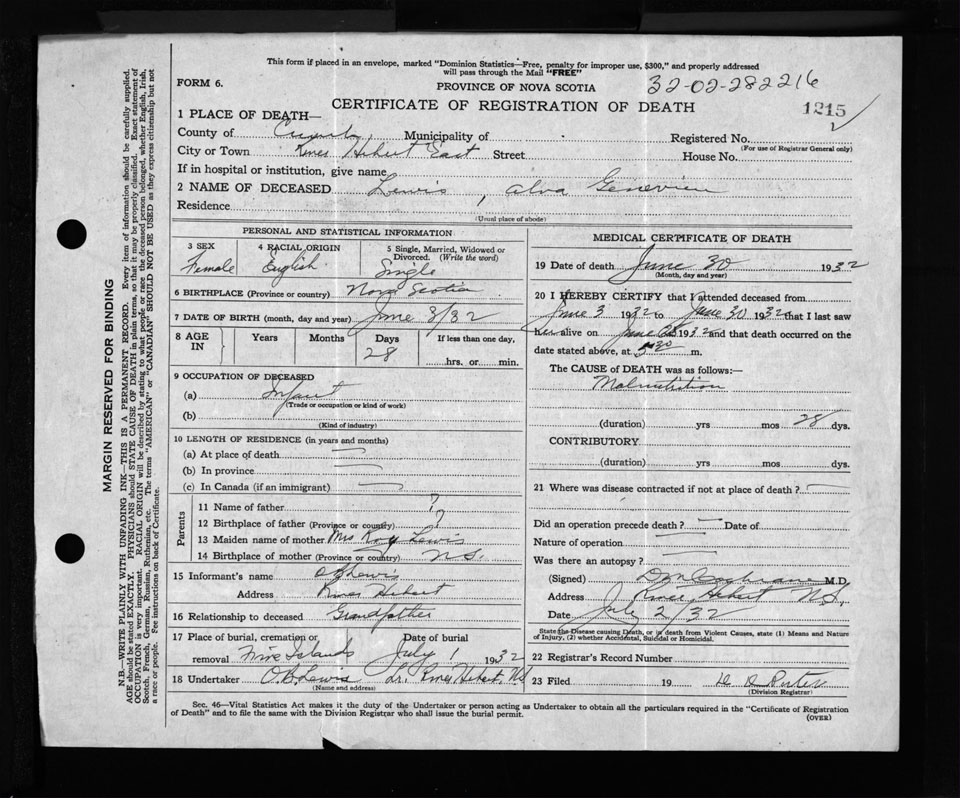 This form if placed in an envelope, marked "Dominion Statistics—Free, penalty for improper use, $300," and properly addressed
will pass through the Mail "FREE"
FORM 6.
PROVINCE OF NOVA SCOTIA
32-02-282216
CERTIFICATE OF REGISTRATION OF DEATH
1215
1 PLACE OF DEATH—
County of Municipality of Registered No.
(For use of Registrar General only)
City or Town River Hebert East Street House No.
If in hospital or institution, give name
2 NAME OF DECEASED Lewis, Alva Genevieve
Residence
(Usual place of abode)
PERSONAL AND STATISTICAL INFORMATION
3 SEX 4 RACIAL ORIGIN 5 Single, Married, Widowed or
Divorced. (Write the word)
Female English Single
6 BIRTHPLACE (Province or country) Nova Scotia
7 DATE OF BIRTH (month, day and year) June 3/32
8 AGE IN Years Months Days If less than one day,
28 hrs. or min.
9 OCCUPATION OF DECEASED
(a) Infant
(Trade or occupation or kind of work)
(b)
(Kind of industry)
10 LENGTH OF RESIDENCE (in years and months)
(a) At place of death
(b) In province
(c) In Canada (if an immigrant)
Parents
11 Name of father ?
12 Birthplace of father (Province or country) ?
13 Maiden name of mother Mrs Roy Lewis
14 Birthplace of mother (Province or country) N.S.
15 Informant's name O B Lewis
Address River Hebert
16 Relationship to deceased Grandfather
17 Place of burial, cremation or removal Five Islands Date of burial July 1 1932
18 Undertaker O.B. Lewis, Lr. River Hebert, N.S.
(Name and address)
MEDICAL CERTIFICATE OF DEATH
19 Date of death June 30 1932
(Month, day and year)
20 I HEREBY CERTIFY that I attended deceased from
June 3 1932 to June 30 1932 that I last saw
her alive on June 1932 and that death occurred on
date stated above, at 5 30 m.
The CAUSE of DEATH was as follows:—
Malnutrition
(duration) yrs mos 28 dys.
CONTRIBUTORY
(duration) yrs mos dys.
21 Where was disease contracted if not at place of death?
Did an operation precede death? Date of
Nature of operation
Was there an autopsy?
(Signed) Cochrane M.D.
Address River Hebert N.S.
Date July 2/32
State the Disease causing Death, or is death from Violent Causes, state (1) Means and Nature
of Injury, (2) whether Accidental, Suicidal or Homicidal.
22 Registrar's Record Number
23 Filed 19
(Division Registrar)
Sec. 46—Vital Statistics Act makes it the duty of the Undertaker or person acting as Undertaker to obtain all the particulars required in the "Certificate of Registration
of Death" and to file the same with the Division Registrar who shall issue the burial permit.
(OVER)
MARGIN RESERVED FOR BINDING
N.B.—WRITE PLAINLY WITH UNFADING INK—THIS IS A PERMANENT RECORD. Every item of information should be carefully supplied.
AGE should be stated EXACTLY. PHYSICIANS should STATE CAUSE OF DEATH in plain terms, so that it may be properly classified. Exact statement of
OCCUPATION is very important. RACIAL ORIGIN will be described by stating to what people or race the deceased person belonged, whether English, Irish,
Scotch, French, German, Russian, Ruthenian, etc. The terms "AMERICAN" or "CANADIAN" SHOULD NOT BE USED as they express citizenship but not
a race or people. See instructions on back of Certificate.